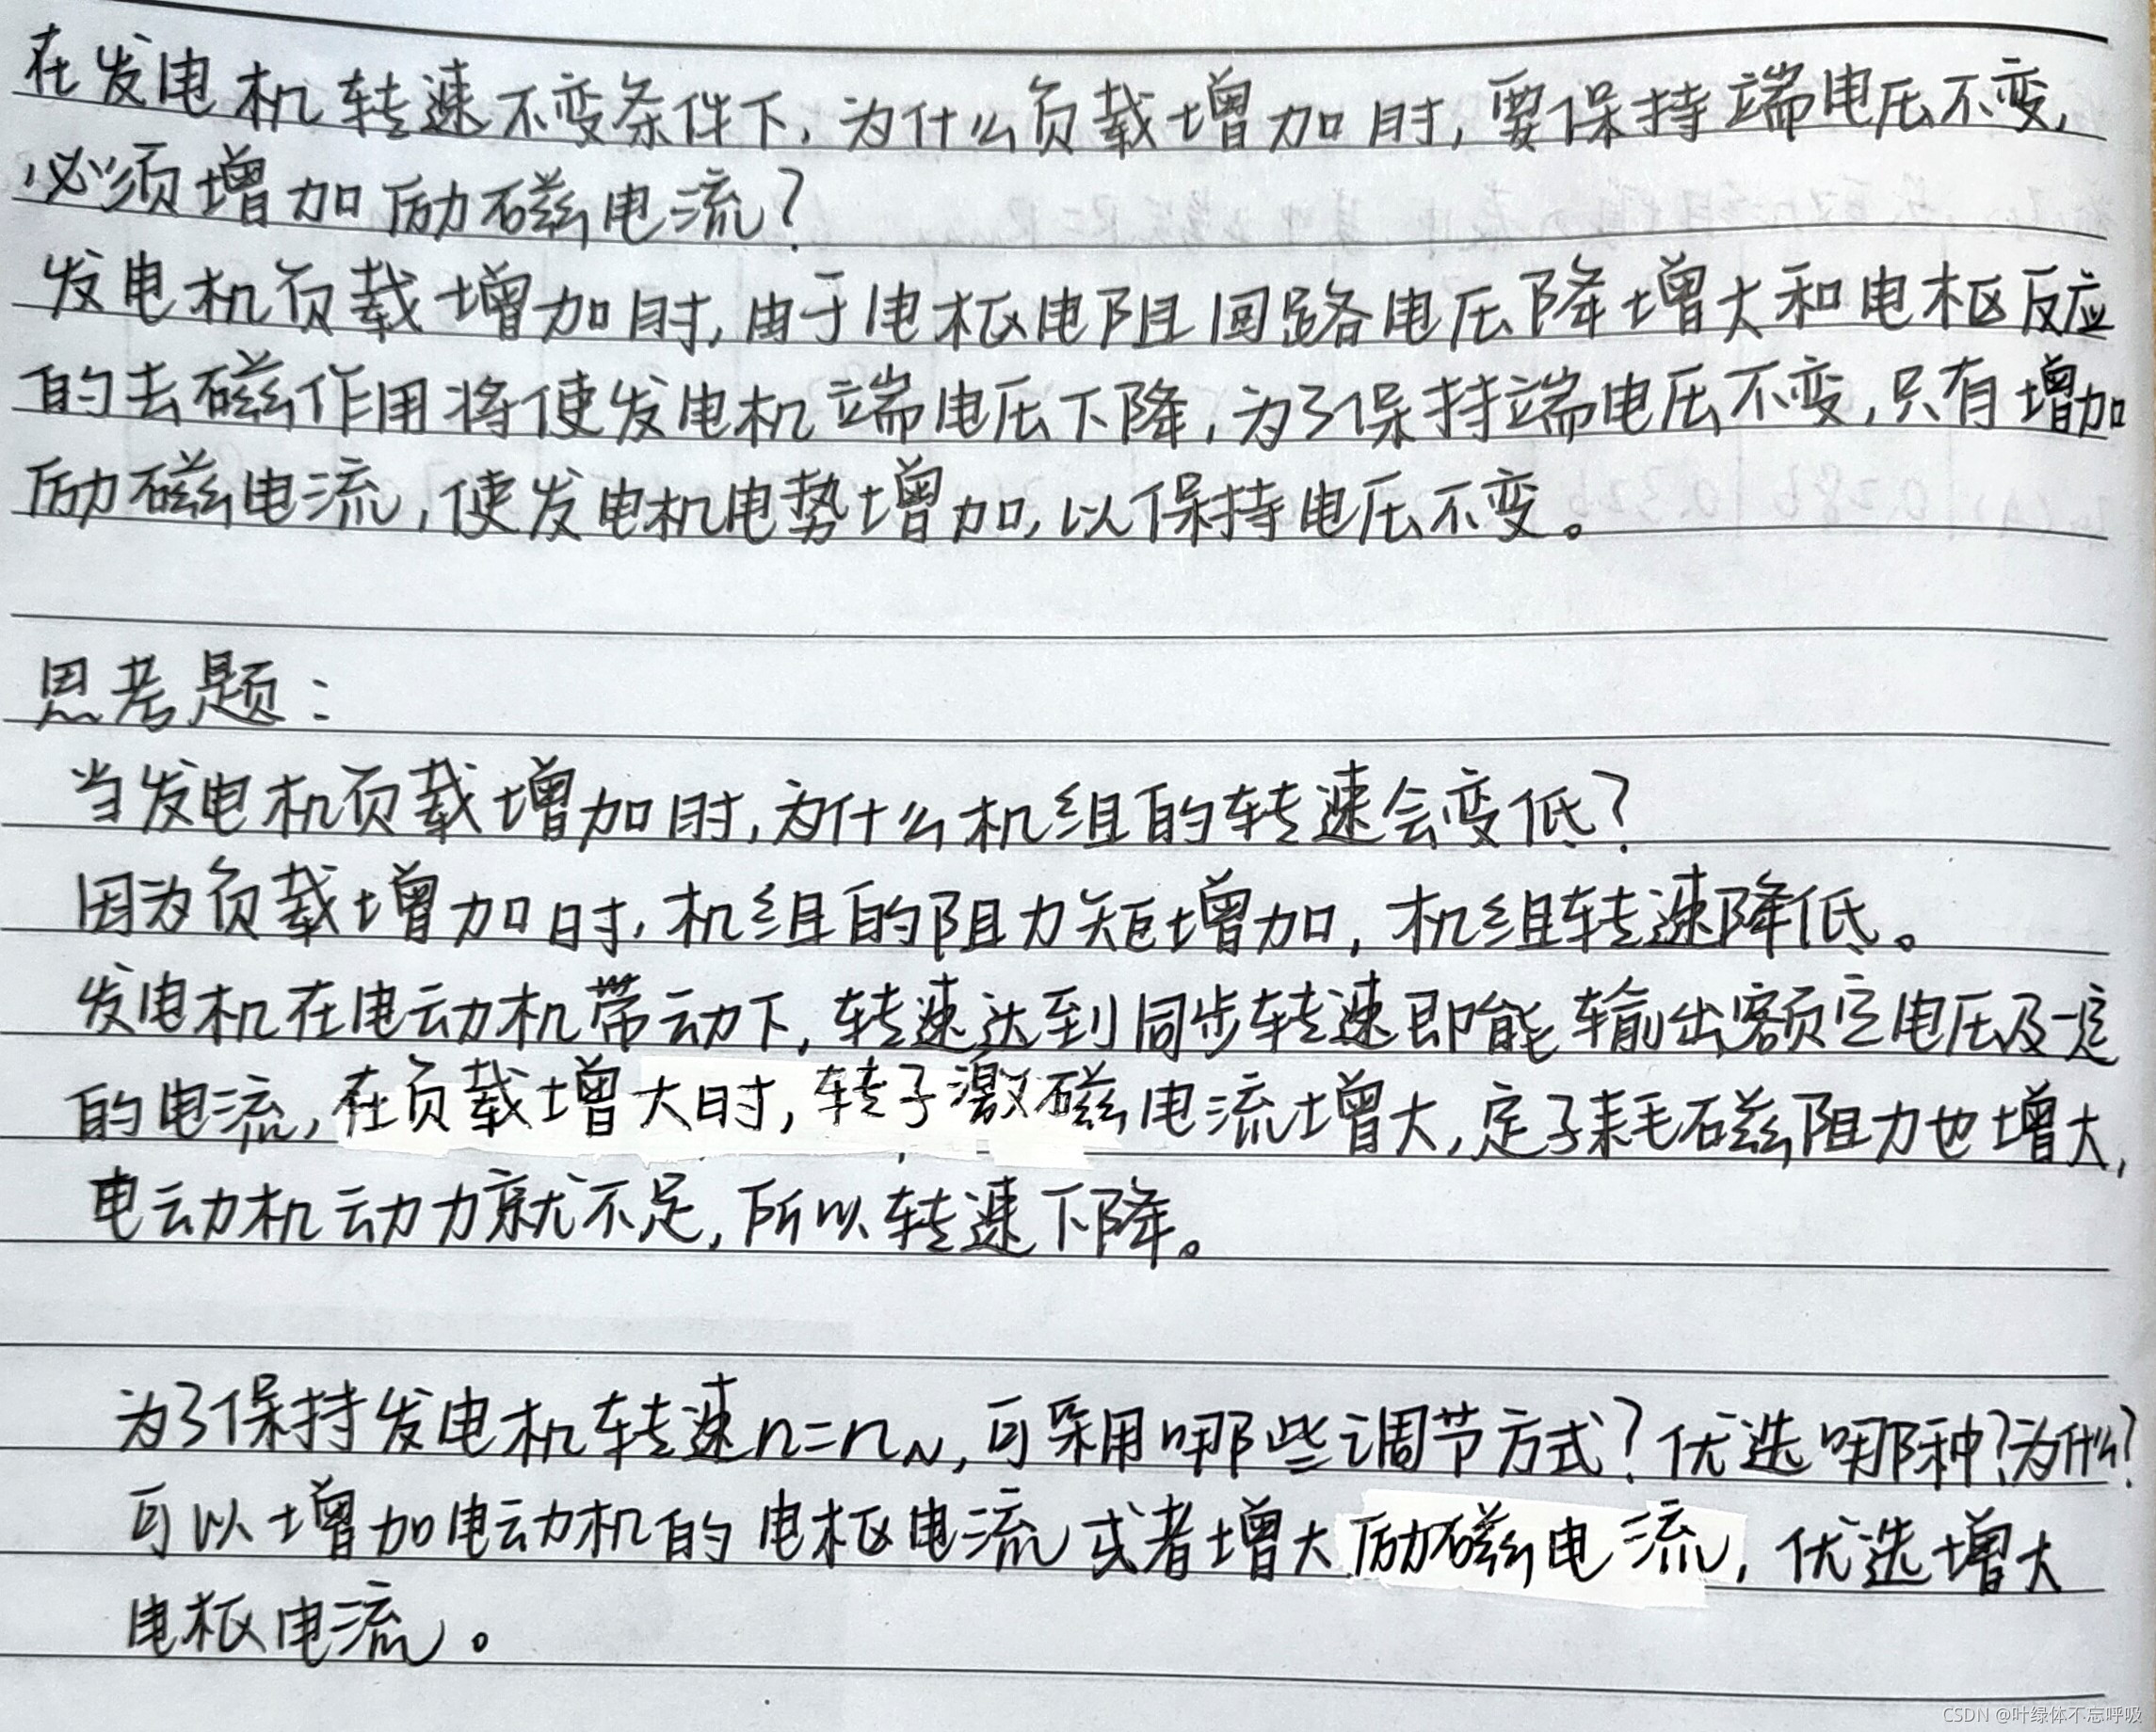 在发电机转速不变条件下，为什么负载增加时，要保持端电压不变，
必须增加励磁电流？
发电机负载增加时，由于电枢电阻回路电压降增大和电枢反应
的去磁作用将使发电机端电压下降，为了保持端电压不变，只有增加
励磁电流，使发电机电势增加，以保持电压不变。
思考题：
当发电机负载增加时，为什么机组的转速会变低？
因为负载增加时，机组的阻力矩增加，机组转速降低。
发电机在电动机带动下，转速达到同步转速即能输出额定电压及一定
的电流，在负载增大时，转子激磁电流增大，定子耗磁阻力也增大，
电动机动力就不足，所以转速下降。
为了保持发电机转速n=nN，可采用哪些调节方式？优选哪种？为什么？
可以增加电动机的电枢电流或者增大励磁电流，优选增大
电枢电流。
CSDN @叶绿体不忘呼吸